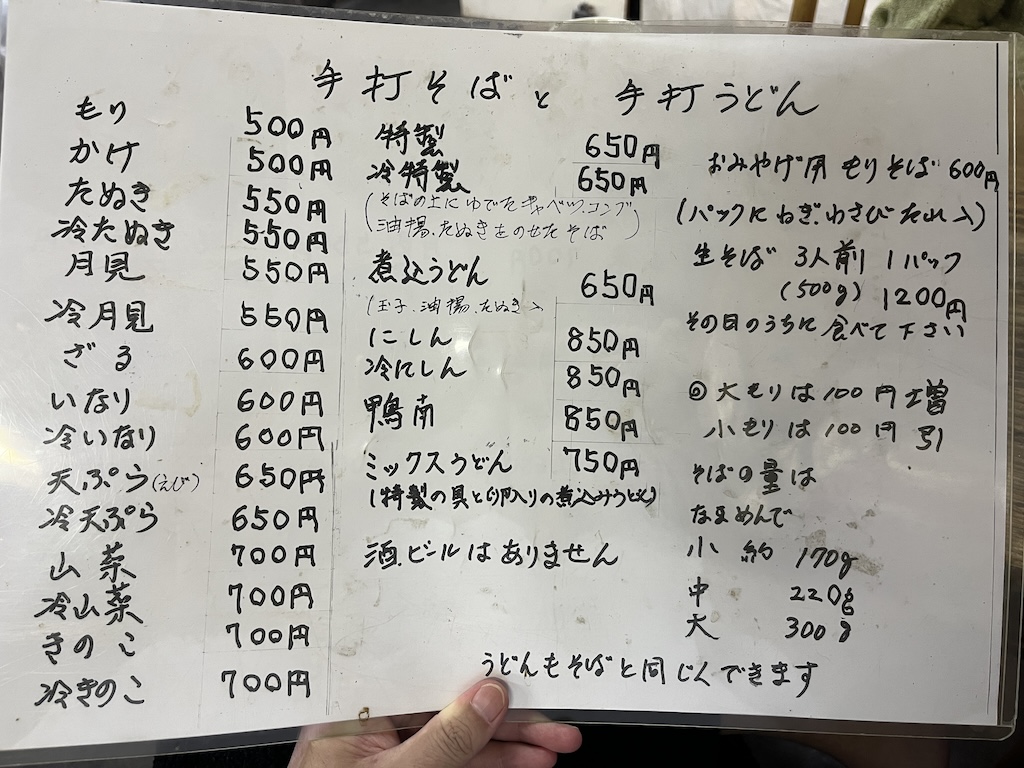 手打そばと 手打うどん
もり 500円
かけ 500円
たぬき 550円
冷たぬき 550円
月見 550円
冷月見 550円
ざる 600円
いなり 600円
冷いなり 600円
天ぷら(えび) 650円
冷天ぷら 650円
山菜 700円
冷山菜 700円
きのこ 700円
冷きのこ 700円
特製 650円
冷特製 650円
(そばの上にゆでたキャベツ、コンブ
油揚、たぬきをのせたそば)
煮込うどん 650円
(玉子、油揚、たぬき入
にしん 850円
冷にしん 850円
鴨南 850円
ミックスうどん 750円
(特製の具ととり肉入りの煮込みうどん)
酒.ビールはありません
おみやげ用 もりそば 600円
(パックにねぎ、わさび たれ入)
生そば 3人前 1パック
(500g) 1200円
その日のうちに食べて下さい
◎大もりは100円増
小もりは100円引
そばの量は
なまめんで
小 約 170g
中 220g
大 300g
うどんもそばと同じくできます